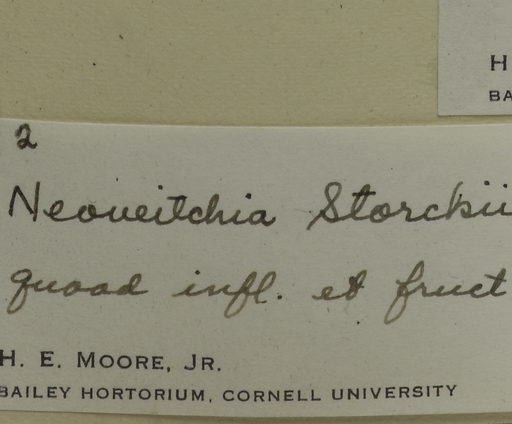 H
BA
2
Neoveitchia Storckii
quoad infl. et fruct
H. E. MOORE, JR.
BAILEY HORTORIUM, CORNELL UNIVERSITY